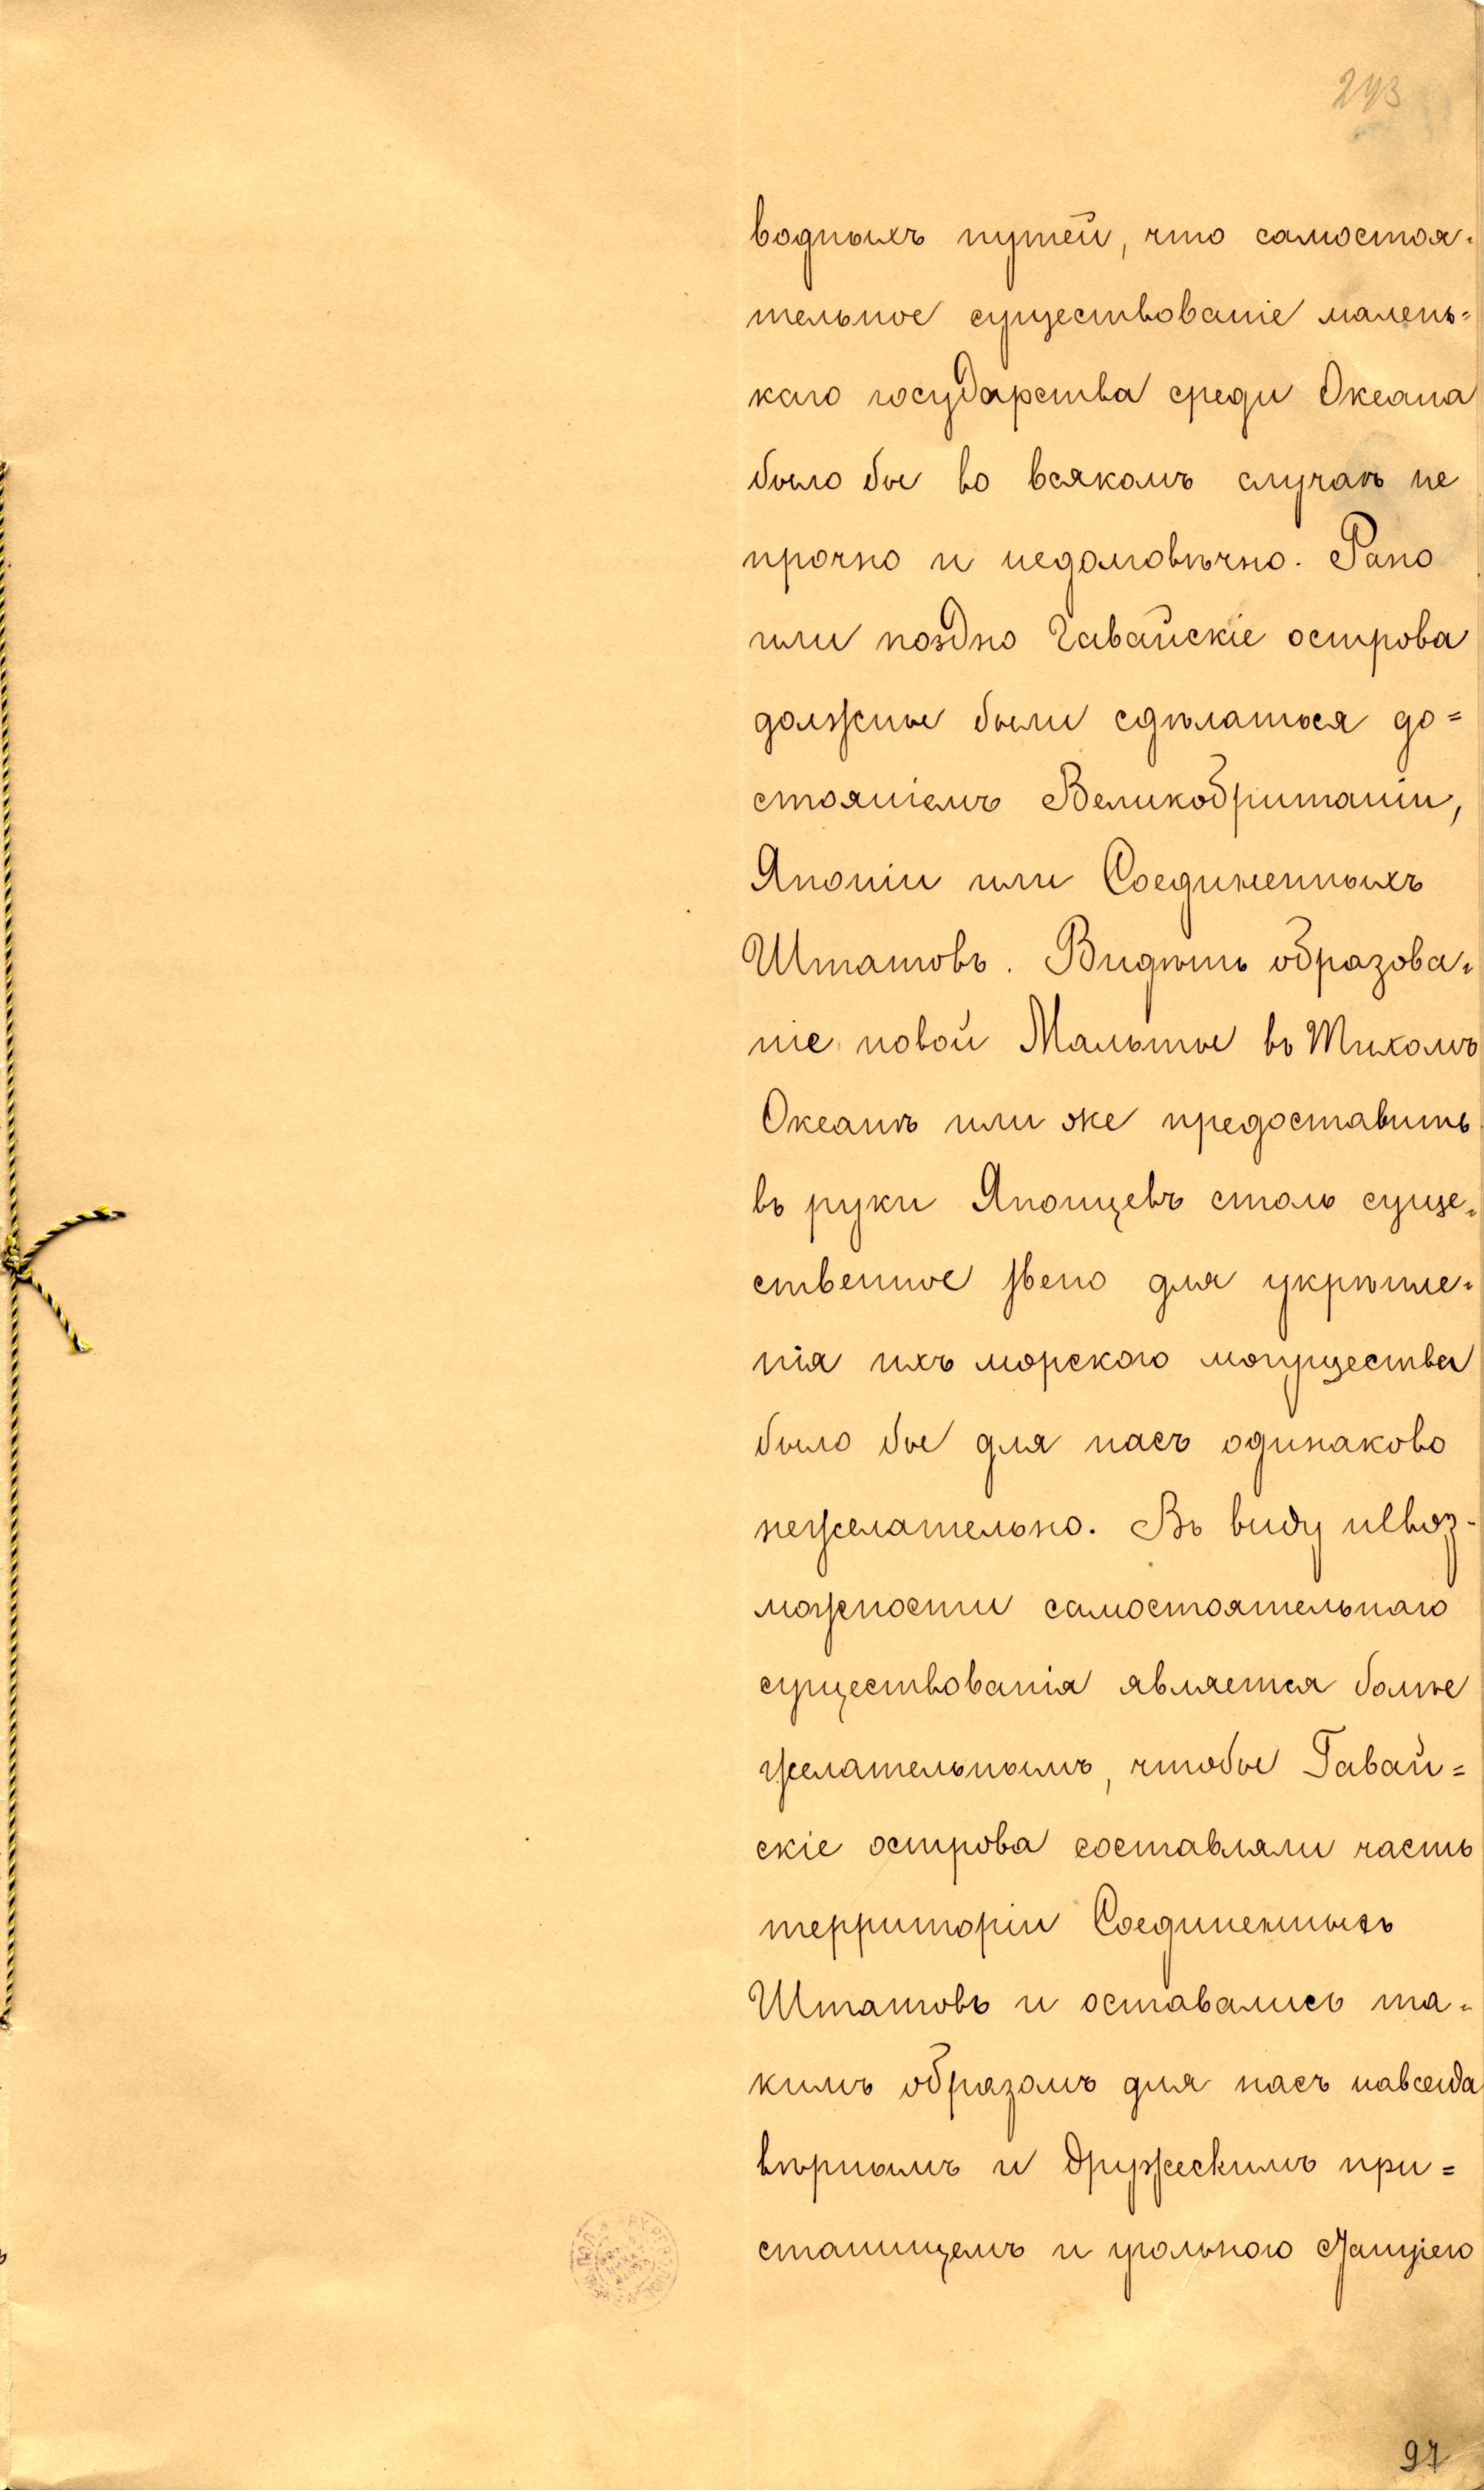 293
водныхъ путей, что самостоя-
тельное существованіе малень=
каго государства среди Океана
было бы во всякомъ случаѣ не
прочно и недолговѣчно. Рано
или поздно Гавайскіе острова
должны были сдѣлаться до=
стояніемъ Великобританіи,
Японіи или Соединенныхъ
Штатовъ. Видѣть образова-
ніе новой Мальты въ Тихомъ
Океанѣ или же предоставить
въ руки Японцевъ столь суще-
ственное звено для укрѣпле-
нія ихъ морского могущества
было бы для насъ одинаково
нежелательно. Въ виду невоз-
можности самостоятельнаго
существованія является болѣе
желательнымъ, чтобы Гавай=
скіе острова составляли часть
территоріи Соединенныхъ
Штатовъ и оставались та-
кимъ образомъ для насъ навсегда
вѣрнымъ и дружескимъ при=
станищемъ и угольною станціею
97